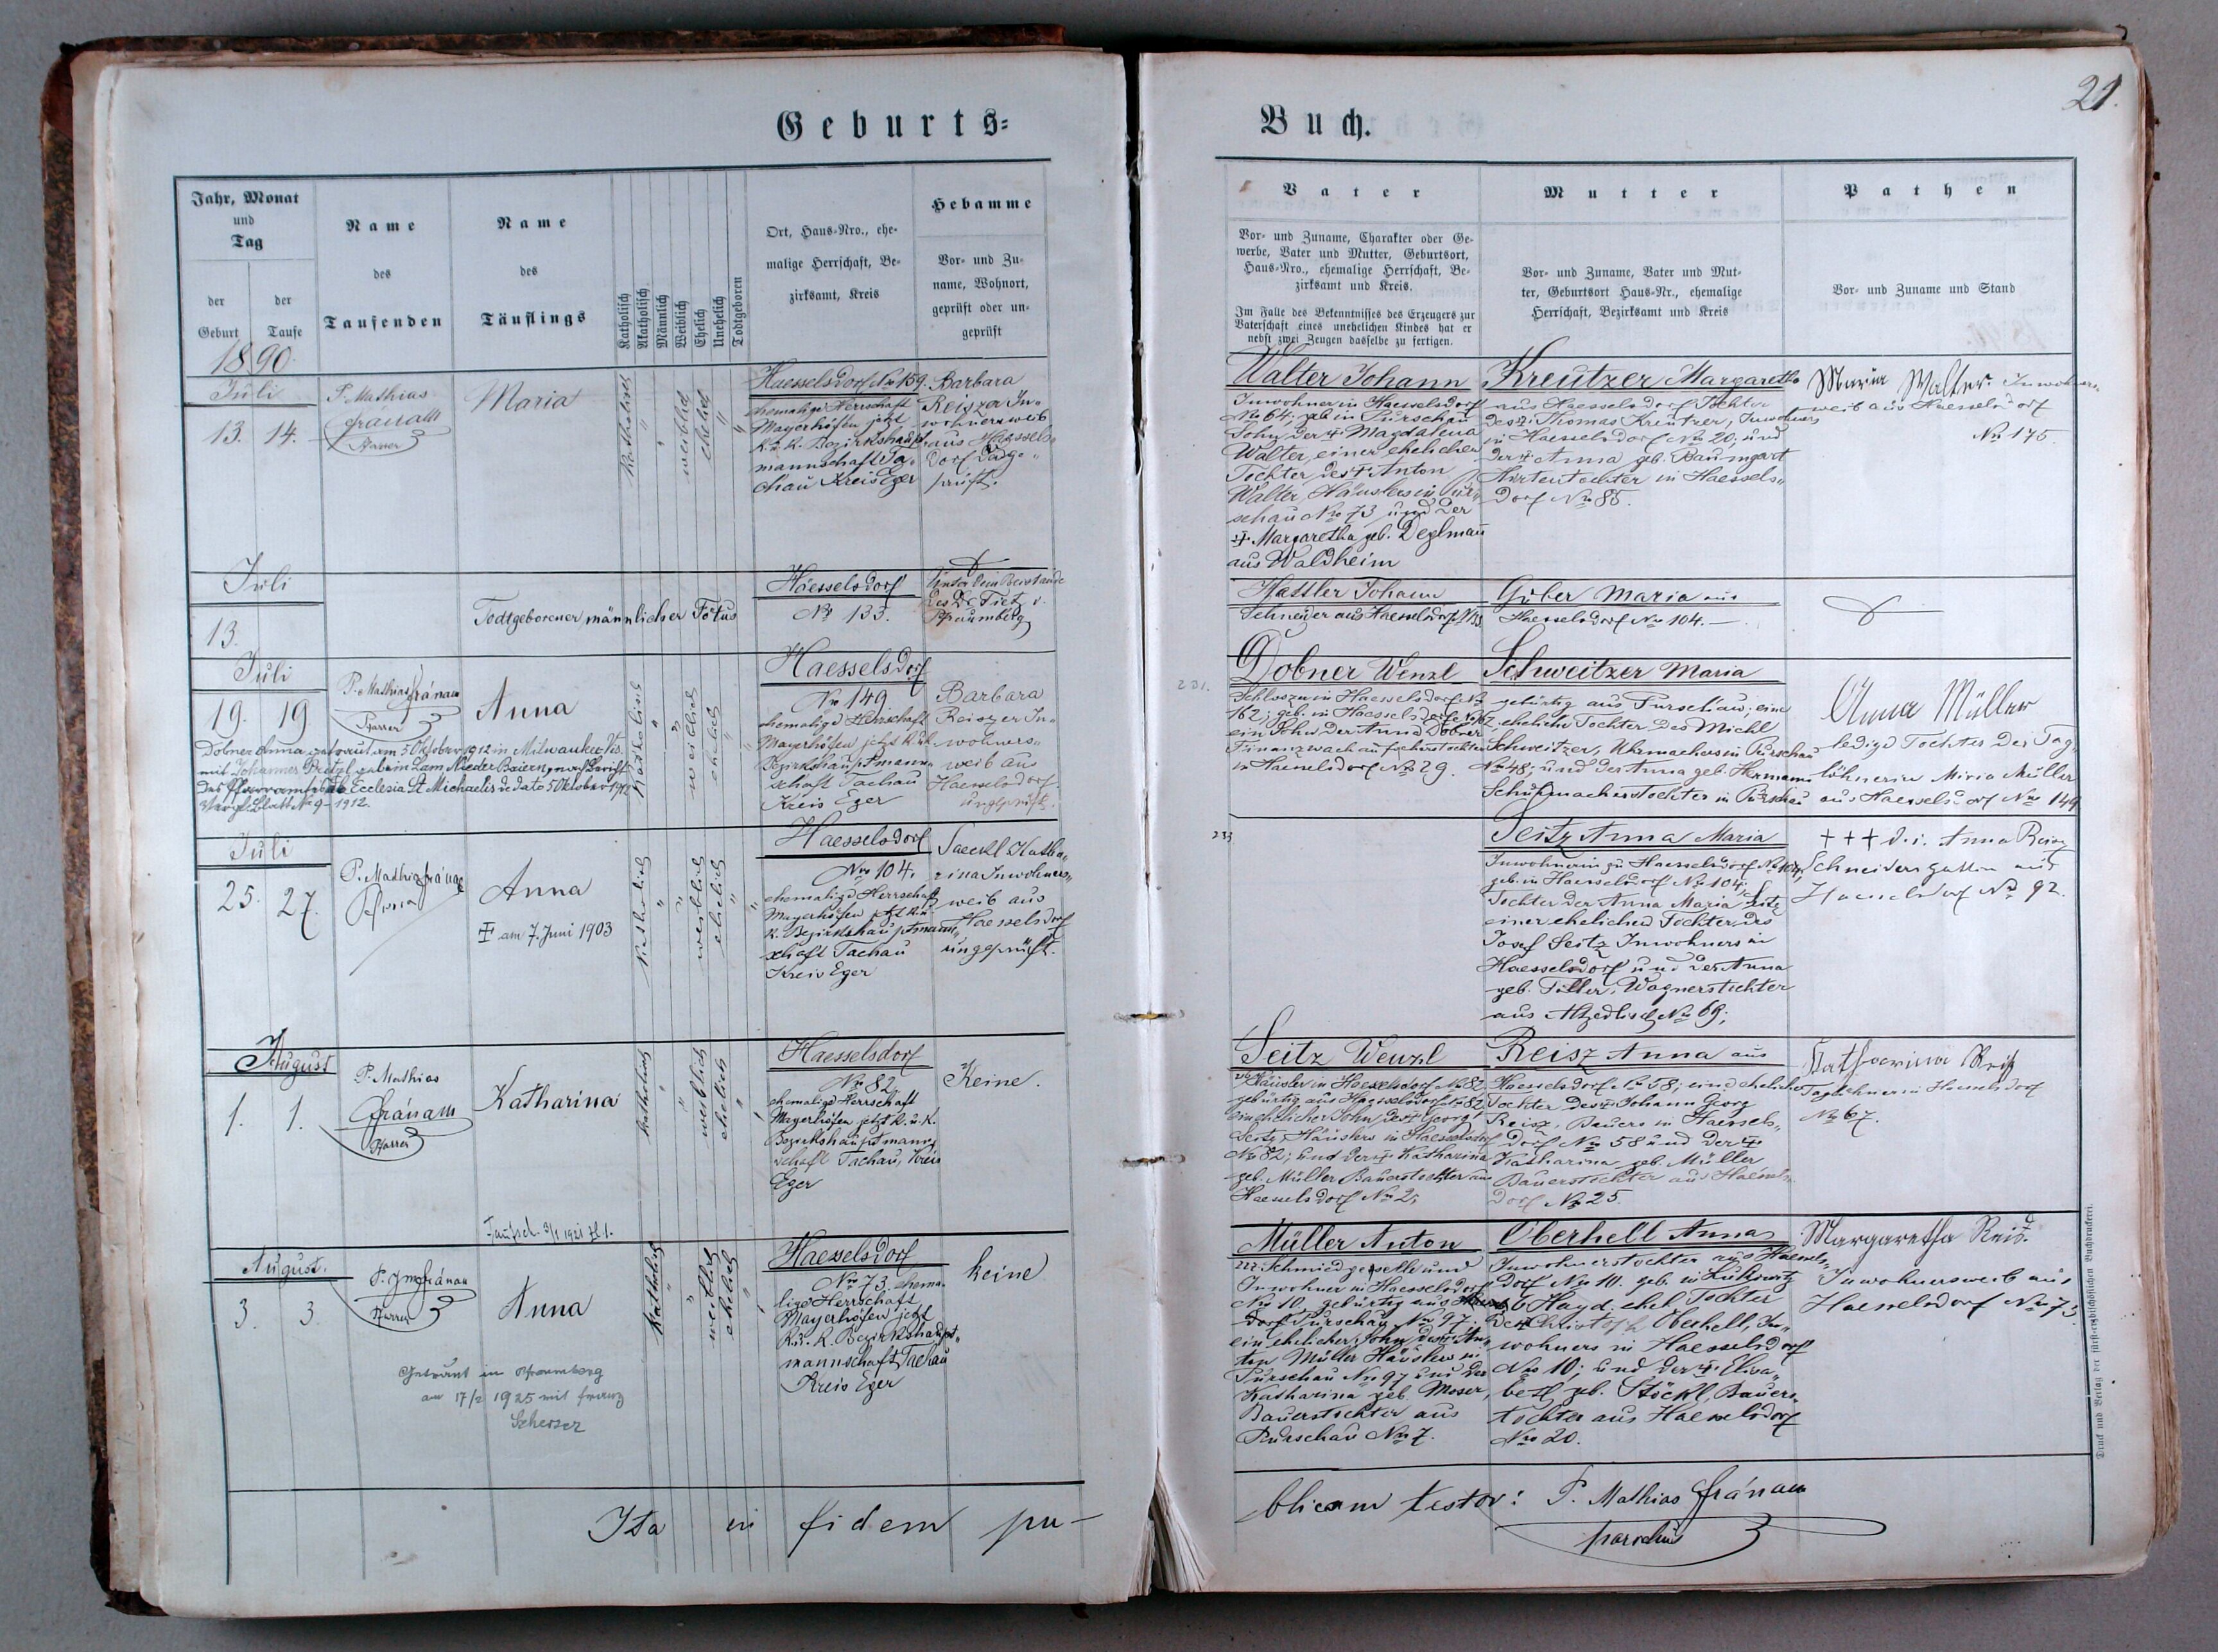 Geburts=
Jahr, Monat
und
Tag
der
Geburt
der
Taufe
Name
des
Taufenden
Name
des
Täuflings
Katholisch
Akatholisch
Männlich
Weiblich
Ehelich
Unehelich
Todtgeboren
Ort, Haus-Nro., ehe-
malige Herrschaft, Be-
zirksamt, Kreis
Hebamme
Vor- und Zu-
name, Wohnort,
geprüft oder un-
geprüft
1890.
Juli
13. 14.
P. Mathias
Pfarrer
Maria
Katholisch
weiblich
ehelich
Haesselsdorf No 159.
ehemalige Herrschaft
Mayerhöfen jetzt
k. k. Bezirkshaupt
mannschaft Ta-
chau Kreis Eger
Barbara
Reiszer In-
wohnersweib
aus Haessels-
dorf
Juli
13.
Todtgeborener männlicher Fötus
Haesselsdorf
No 133.
Unter dem Beistande
des Dr Tietz
Pfraumberg
Juli
19. 19
P. Mathias
Pfarrer
Anna
Katholisch
weiblich
ehelich
Haesselsdorf
No 149
ehemalige Herrschaft
Mayerhöfen jetzt k. u. k
Bezirkshauptmann-
schaft Tachau
Kreis Eger
Barbara
Reiszer In-
wohners-
weib aus
Haesselsdorf
ungeprüft.
Dobner Anna getraut am 5 Oktober 1912 in Milwaukee Vis.
mit Johannes geb. in Lam Nieder Baiern, nach Bericht
des Pfarramtes Ecclesia St Michaelis de dato 5 Oktober 1912
Vergl. Blatt No 9 - 1912.
Juli
25. 27.
P. Mathias
Anna
am 7. Juni 1903
Katholisch
weiblich
ehelich
Haesselsdorf
No 104.
ehemalige Herrschaft
Mayerhöfen jetzt k. u.
k. Bezirkshauptmann-
schaft Tachau
Kreis Eger
Saeckl Katha-
rina Inwohners-
weib aus
Haesselsdorf
ungeprüft.
August
1. 1.
P. Mathias
Pfarrer
Katharina
Katholisch
weiblich
ehelich
Haesselsdorf
No 82,
ehemalige Herrschaft
Mayerhöfen jetzt k. u. k.
Bezirkshauptmann-
schaft Tachau, Kreis
Eger
Keine.
Taufsch. 3/1 1921 Zl. 1.
August.
3. 3.
Pfarrer
Anna
Katholisch
weiblich
ehelich
Haesselsdorf
No 73, ehema-
lige Herrschaft
Mayerhöfen jetzt
k. u. k. Bezirkshaupt-
mannschaft Tachau
Kreis Eger
keine
Getraut in Pfraumberg
am 17/2 1925 mit Franz
Ita in fidem pu-
Buch.
21.
Vater
Vor- und Zuname, Charakter oder Ge-
werbe, Vater und Mutter, Geburtsort,
Haus-Nro., ehemalige Herrschaft, Be-
zirksamt und Kreis.
Im Falle des Bekenntnisses des Erzeugers zur
Vaterschaft eines unehelichen Kindes hat er
nebst zwei Zeugen dasselbe zu fertigen.
Mutter
Vor- und Zuname, Vater und Mut-
ter, Geburtsort Haus-Nr., ehemalige
Herrschaft, Bezirksamt und Kreis
Pathen
Vor- und Zuname und Stand
Walter Johann
Inwohner in Haesselsdorf
No 64; geb in Purschau
Sohn der † Magdalena
Walter, einer ehelichen
Tochter des † Anton
Walter, Häuslers in Pur-
schau No 73 und der
† Margaretha geb. Deglmañ
aus Waldheim
Kreutzer Margaretha
aus Haesselsdorf Tochter
des † Thomas Kreutzer, Inwohners
in Haesselsdorf No 20; und
der † Anna geb. Baumgart
Hirtentochter in Haessels-
dorf No 85.
Maria Walter. Inwohners-
weib aus Haesselsdorf
No 175.
Hassler Johann
Schneider aus Haesselsdorf
Guber Maria aus
Haesselsdorf No 104.
231.
Dobner Wenzl
in Haesselsdorf No
162; geb. in Haesselsdorf
ein Sohn der Anna Dobner
Finanzwachaufseherstochter
in Haesselsdorf No 29.
Schweitzer Maria
gebürtig aus Purschau; eine
eheliche Tochter des Michl
Schweitzer, Uhrmachers in Purschau
No 48; und der Anna geb. Hermann
Schuhmacherstochter in Purschau
Anna Müller
ledige Tochter der Tag-
löhnerin Maria Müller
aus Haesselsdorf No 149
233
Seitz Anna Maria
Inwohnerin zu Haesselsdorf No 104,
geb. in Haesselsdorf No 104;
Tochter der Anna Maria Seitz
einer ehelichen Tochter des
Josef Seitz Inwohners in
Haesselsdorf und der Anna
geb. Tiller, Wagnerstochter
aus Altzedlisch No 69;
+++ d. i. Anna Reisz
Schneidersgattin aus
Haesselsdorf No 92.
Seitz Wenzl
Häusler in Haesselsdorf No 82
gebürtig aus Haesselsdorf No 82
ein ehelicher Sohn des † Georg
Seitz, Häuslers in Haesselsdorf
No 82; und der † Katharina
geb. Müller Bauerstochter aus
Haesselsdorf No 2;
Reisz Anna aus
Haesselsdorf No 58; eine eheliche
Tochter des † Johann Georg
Reisz, Bauers in Haessels-
dorf No 58 und der †
Katharina geb. Müller
Bauerstochter aus Haessels-
dorf No 25.
Katharina Reiß
Taglöhnerin Haesselsdorf
No 67.
Müller Anton
Schmiedgeselle und
Inwohner in Haesselsdorf
No 10. gebürtig aus
Purschau No 97.
ein ehelicher Sohn des † An-
ton Müller Häuslers in
Purschau No 97 und der
Katharina geb. Moser,
Bauerstochter aus
Purschau No 7.
Oberhell Anna
Inwohnerstochter aus Haessels-
dorf No 10. geb. in
b Hayd. ehel. Tochter
des † Christoph Oberhell, In-
wohners in Haesselsdorf
No 10; und der † Elisa-
beth geb. Stöckl, Bauers-
tochter aus Haesselsdorf
No 20.
Margaretha Reis.
Inwohnersweib aus
Haesselsdorf No 73
blicam testor: P. Mathias
parochus
Druck und Verlag der fürst-erzbischöflichen Buchdruckerei.